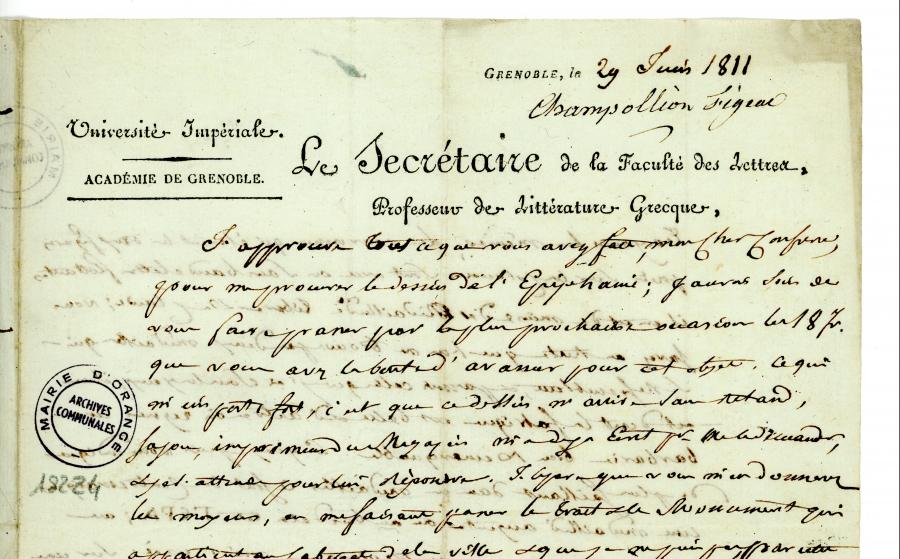 GRENOBLE, le 29 Juin 1811
Champollion Figeac
Université Impériale.
ACADÉMIE DE GRENOBLE.
Le Secrétaire de la Faculté des Lettres,
Professeur de Littérature Grecque,
J'approuve tout ce que vous avez fait, mon Cher Confrere,
pour me procurer le dessin de l'Epiphanie; J'aurai soin de
vous faire passer par la plus prochaine occasion les 18 fr.
que vous avez la bonté d'avancer pour cet objet. ce qui
m'importe fort, c'est que ce dessin m'arrive sans retard,
m'a deja Ecrit pr. me le demander,
et attend pour lui réponse. J'espere que vous m'en donnerez
les moyens, en me faisant passer le trait de le Monument qui
appartient au de la ville et que je ne puis
MAIRIE D'ORANGE
ARCHIVES
COMMUNALES
18224